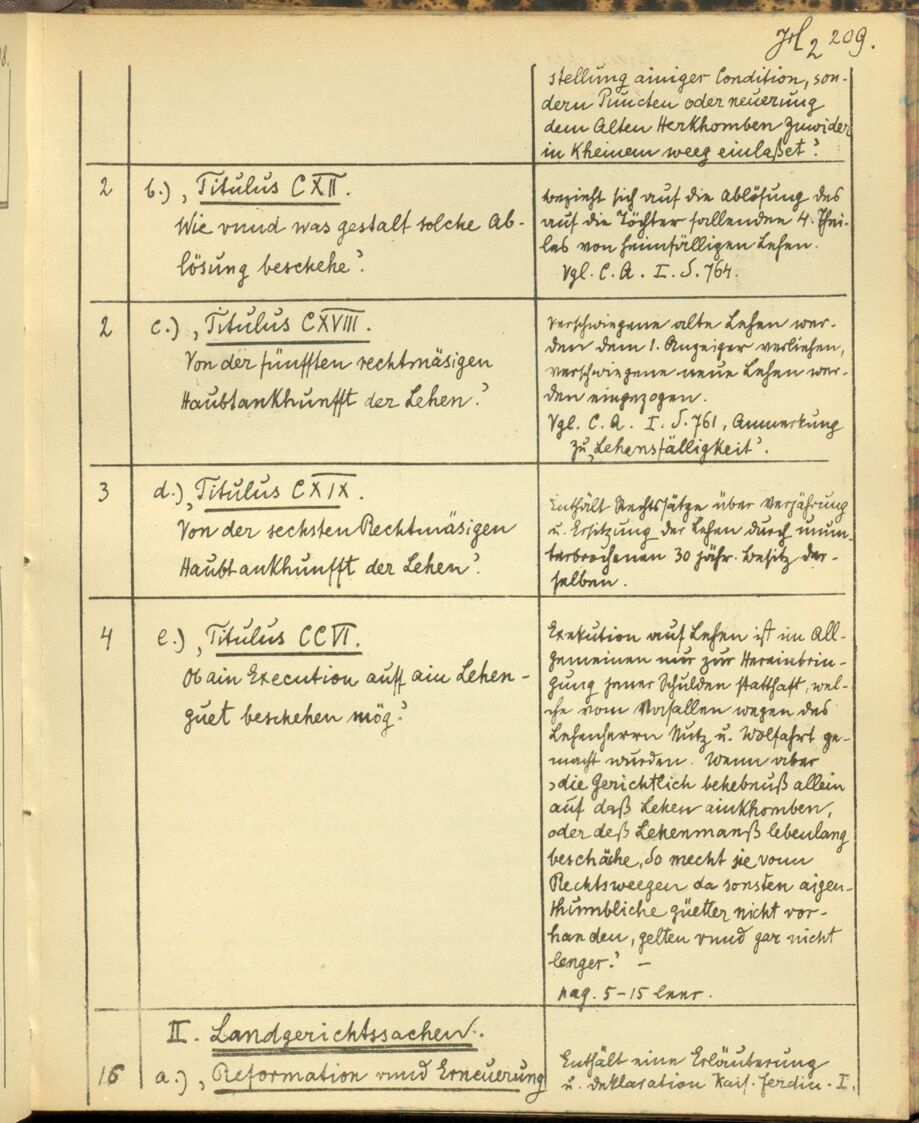 209.
stellung ainiger Condition, son-
dern Puncten oder neuerung
dem Alten Herkhomben zuwider
in kheinem weeg einlaßet?
2 b.) „Titulus CXII.
Wie vnnd was gestalt solche Ab-
lösung beschehe?
bezieht sich auf die Ablösung des
auf die Töchter fallenden 4. Thei-
les von heimfälligen Lehen.
Vgl. C. A. I. S. 764.
2 c.) „Titulus CXVIII.
Von der fünfften rechtmäsigen
Haubtankhunfft der Lehen.
Verschwiegene alte Lehen wer-
den dem 1. Anzeiger verliehen,
verschwiegene neue Lehen wer-
den eingezogen.
Vgl. C. A. I. S. 761, Anmerkung
zu „Lehensfälligkeit“.
3 d.) „Titulus CXIX.
Von der sechsten Rechtmäsigen
Haubtankhunfft der Lehen.
Enthält Rechtssätze über Verjährung
u. Ersitzung der Lehen durch unun-
terbrochenen 30 jähr. Besitz der-
selben.
4 e.) „Titulus CCVI.
Ob ain Execution auff ain Lehen-
guet beschehen mög?
Exekution auf Lehen ist im All-
gemeinen nur zur Hereinbrin-
gung jener Schulden statthaft, wel-
che vom Vasallen wegen des
Lehenherrn Nutz u. Wolfahrt ge-
macht wurden. Wenn aber
„die Gerichtlich behebnuß allein
auf daß Lehen ainkhomben,
oder deß Lehenmanß lebenlang
beschäche, So mecht sie vonn
Rechtsweegen da sonsten aigen-
thumbliche güetter nicht vor-
handen, gelten vnnd gar nicht
lenger.“ –
pag. 5–15 leer.
II. Landgerichtssachen.
16 a.) „Reformation vnnd Erneuerung
Enthält eine Erläuterung
u. Deklaration Kais. Ferdin. I.